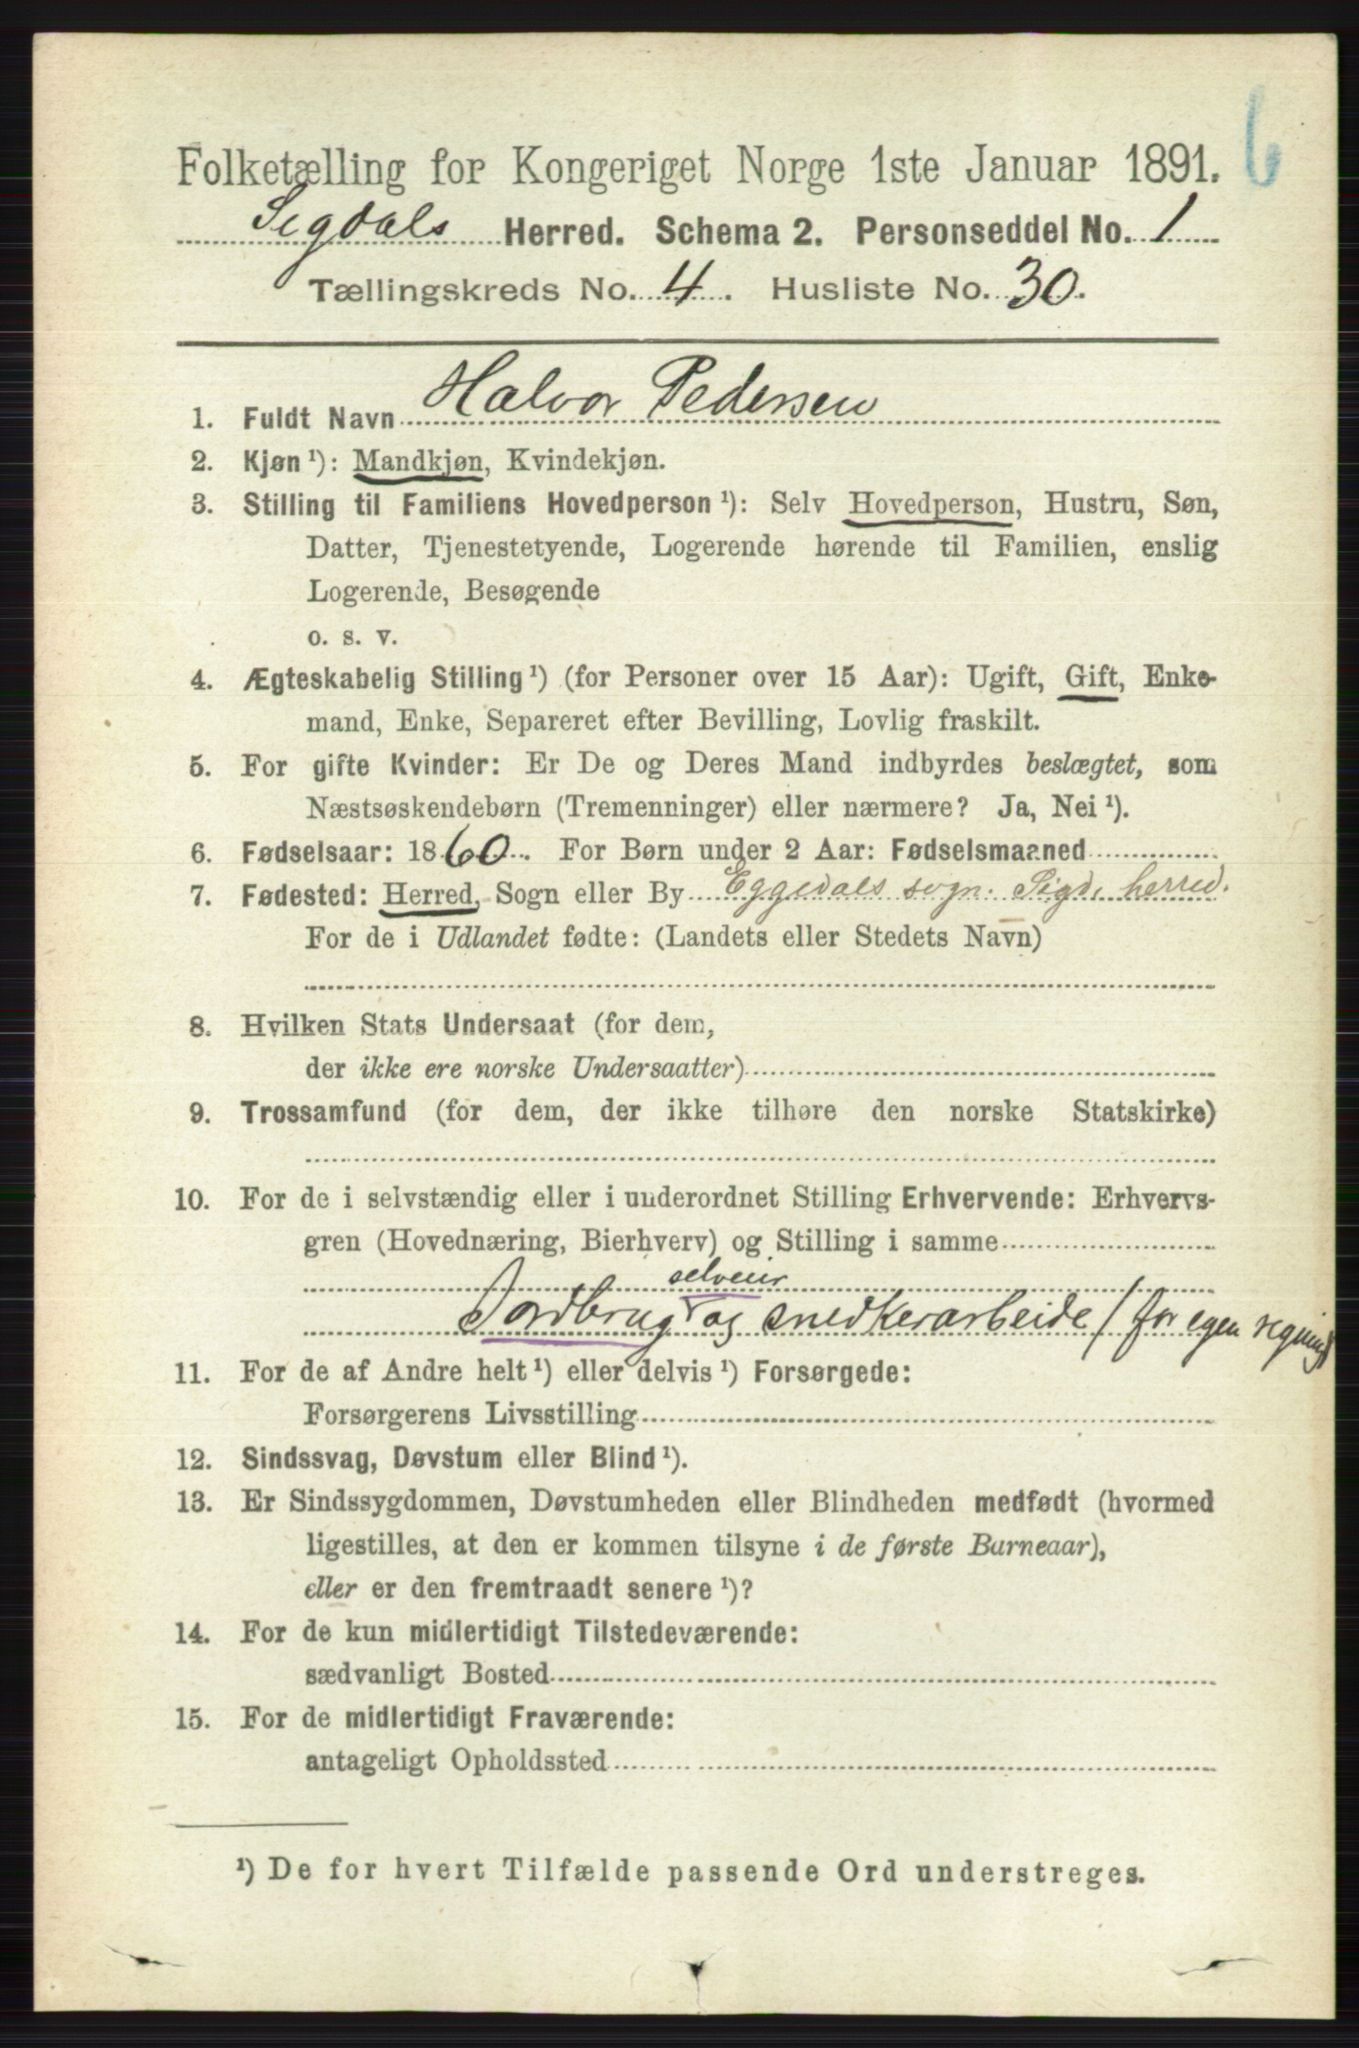 6
Folketælling for Kongeriget Norge 1ste Januar 1891.
Sigdals Herred. Schema 2. Personseddel No. 1
Tællingskreds No. 4. Husliste No. 30.
1. Fuldt Navn Halvor Pedersen
2. Kjøn ¹): Mandkjøn, Kvindekjøn.
3. Stilling til Familiens Hovedperson ¹): Selv Hovedperson, Hustru, Søn,
Datter, Tjenestetyende, Logerende hørende til Familien, enslig
Logerende, Besøgende
o. s. v.
4. Ægteskabelig Stilling ¹) (for Personer over 15 Aar): Ugift, Gift, Enke-
mand, Enke, Separeret efter Bevilling, Lovlig fraskilt.
5. For gifte Kvinder: Er De og Deres Mand indbyrdes beslægtet, som
Næstsøskendebørn (Tremenninger) eller nærmere? Ja, Nei ¹).
6. Fødselsaar: 1860. For Børn under 2 Aar: Fødselsmaaned
7. Fødested: Herred, Sogn eller By Eggedals sogn. Sigd. herred.
For de i Udlandet fødte: (Landets eller Stedets Navn)
8. Hvilken Stats Undersaat (for dem,
der ikke ere norske Undersaatter)
9. Trossamfund (for dem, der ikke tilhøre den norske Statskirke)
10. For de i selvstændig eller i underordnet Stilling Erhvervende: Erhvervs-
gren (Hovednæring, Bierhverv) og Stilling i samme
selveier
Jordbrug og snedkerarbeide / for egen regning)
11. For de af Andre helt ¹) eller delvis ¹) Forsørgede:
Forsørgerens Livsstilling
12. Sindssvag, Døvstum eller Blind ¹).
13. Er Sindssygdommen, Døvstumheden eller Blindheden medfødt (hvormed
ligestilles, at den er kommen tilsyne i de første Barneaar),
eller er den fremtraadt senere ¹)?
14. For de kun midlertidigt Tilstedeværende:
sædvanligt Bosted
15. For de midlertidigt Fraværende:
antageligt Opholdssted
¹) De for hvert Tilfælde passende Ord understreges.